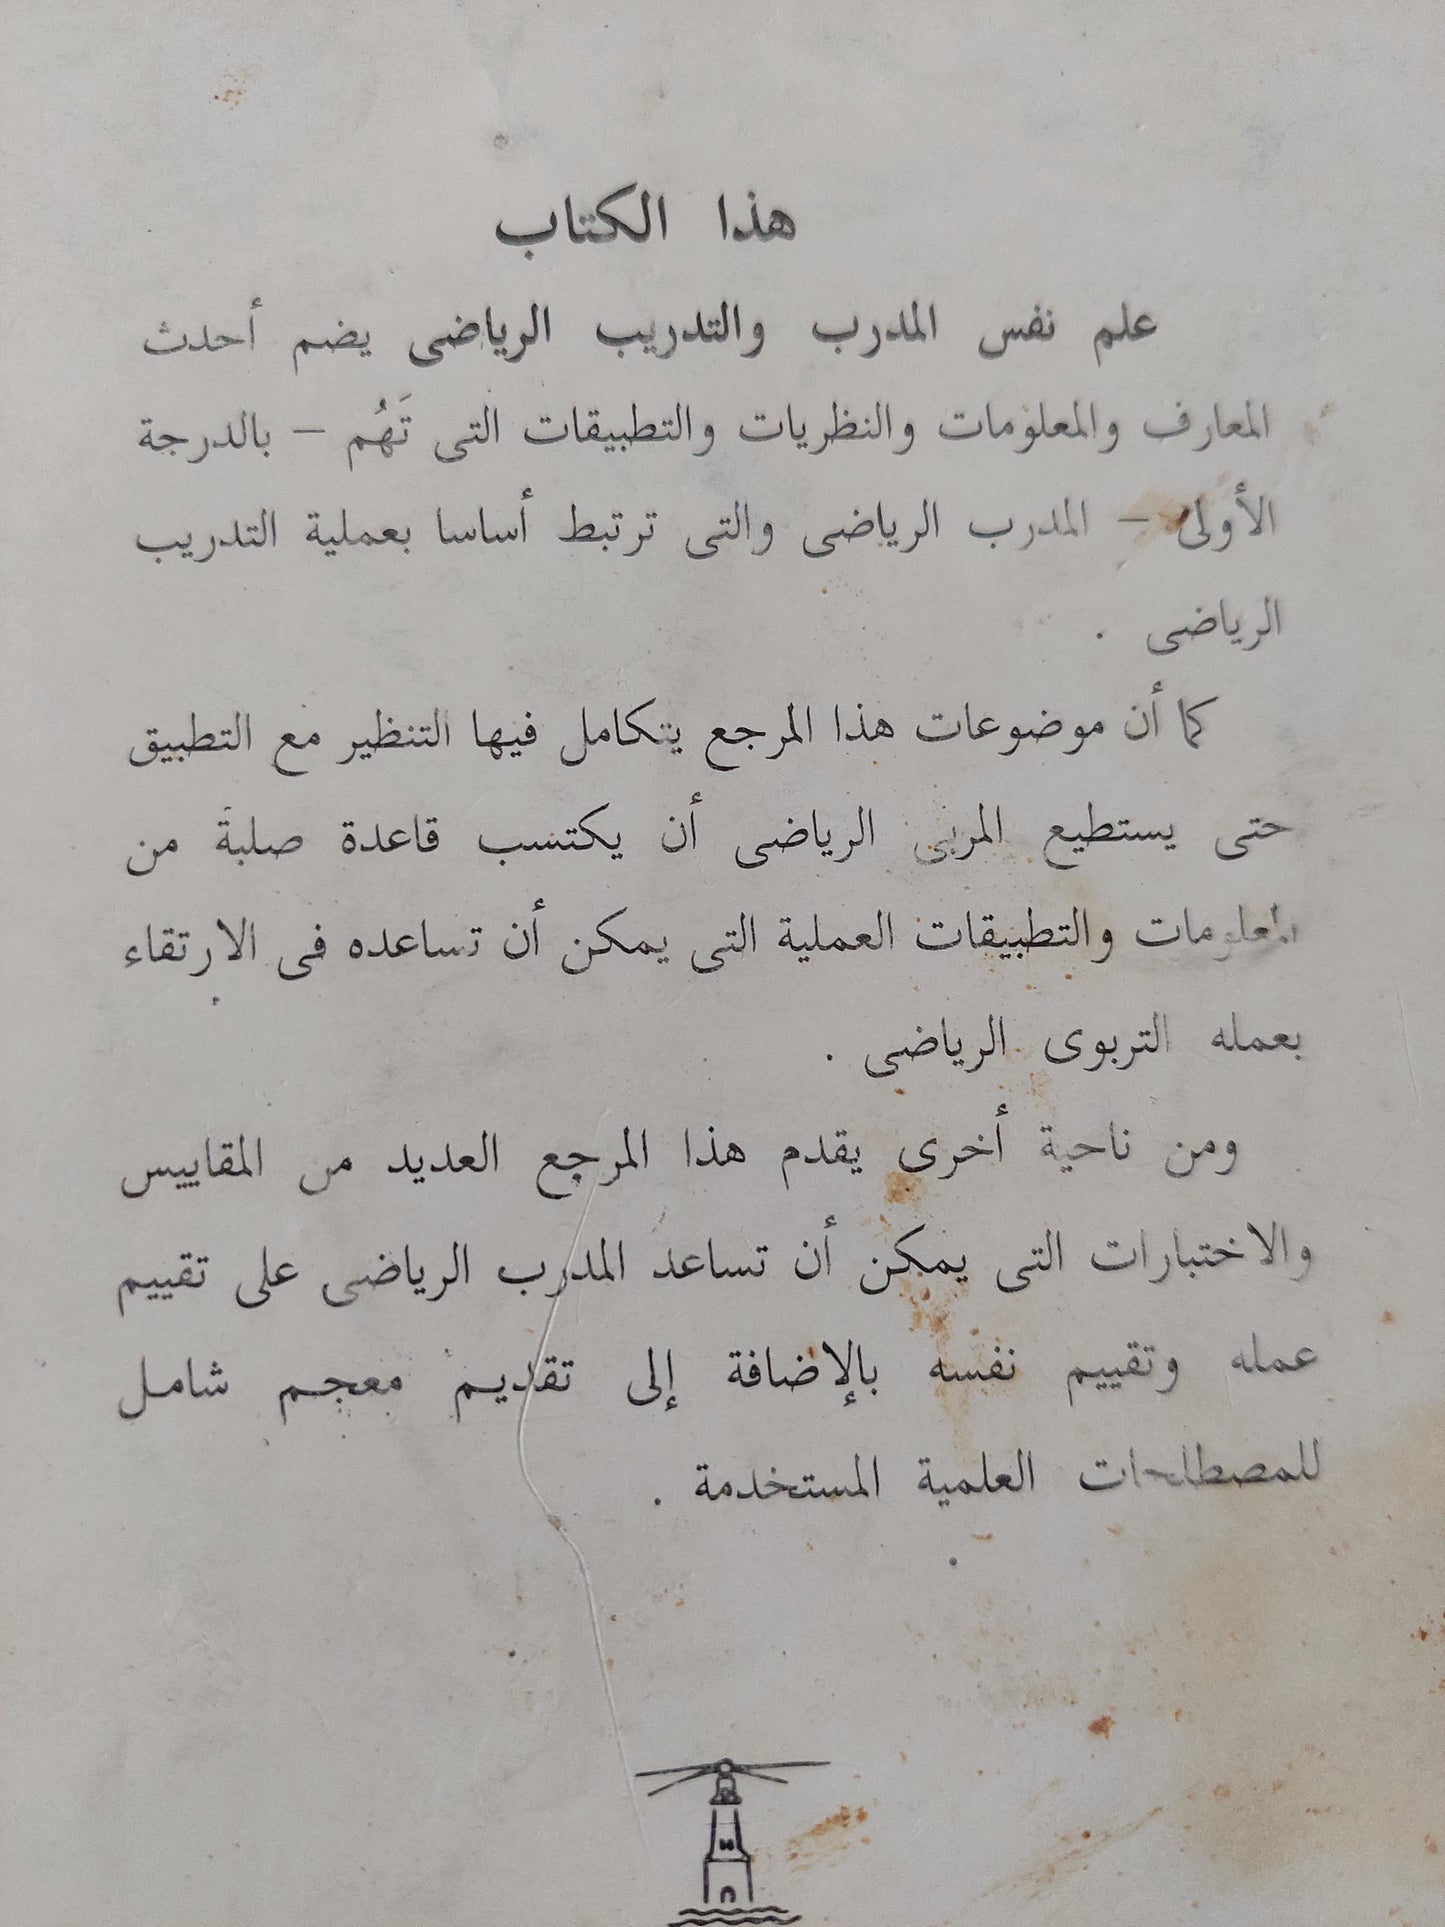 هذا الكتاب
علم نفس المدرب والتدريب الرياضى يضم أحدث
المعارف والمعلومات والنظريات والتطبيقات التى تَهُم – بالدرجة
الأولى – المدرب الرياضى والتى ترتبط أساسا بعملية التدريب
الرياضى .
كما أن موضوعات هذا المرجع يتكامل فيها التنظير مع التطبيق
حتى يستطيع المربى الرياضى أن يكتسب قاعدة صلبة من
المعلومات والتطبيقات العملية التى يمكن أن تساعده فى الارتقاء
بعمله التربوى الرياضى .
ومن ناحية أخرى يقدم هذا المرجع العديد من المقاييس
والاختبارات التى يمكن أن تساعد المدرب الرياضى على تقييم
عمله وتقييم نفسه بالإضافة إلى تقديم معجم شامل
للمصطلحات العلمية المستخدمة .